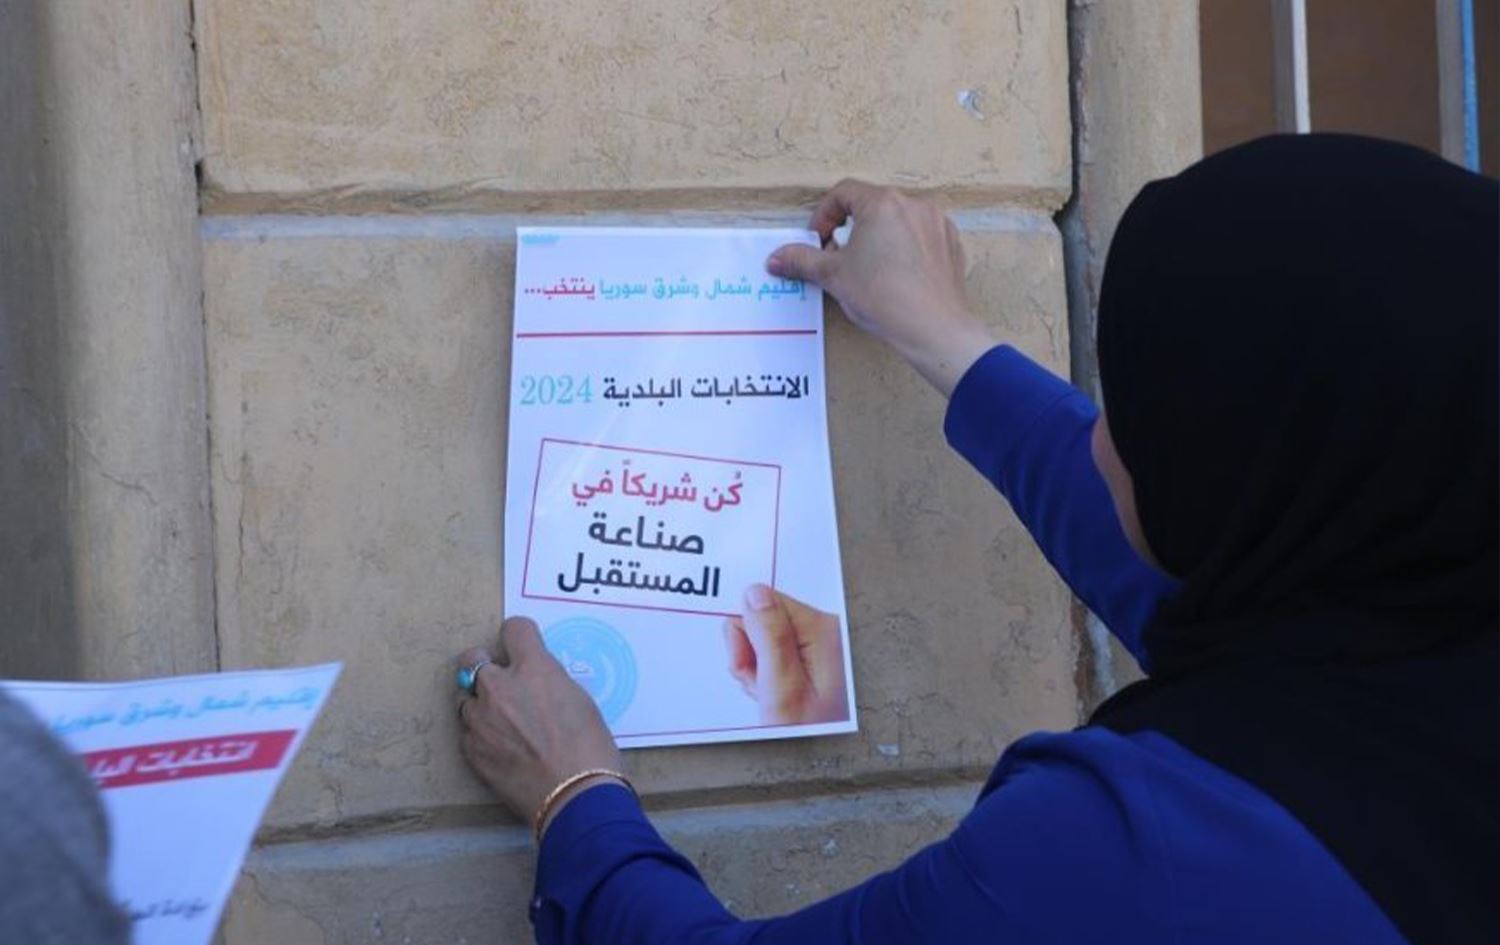 إقليم شمال وشرق سوريا ينتخب...
الانتخابات البلدية 2024
كُن شريكاً في
صناعة
المستقبل
إقليم شمال وشرق سوريا
انتخابات